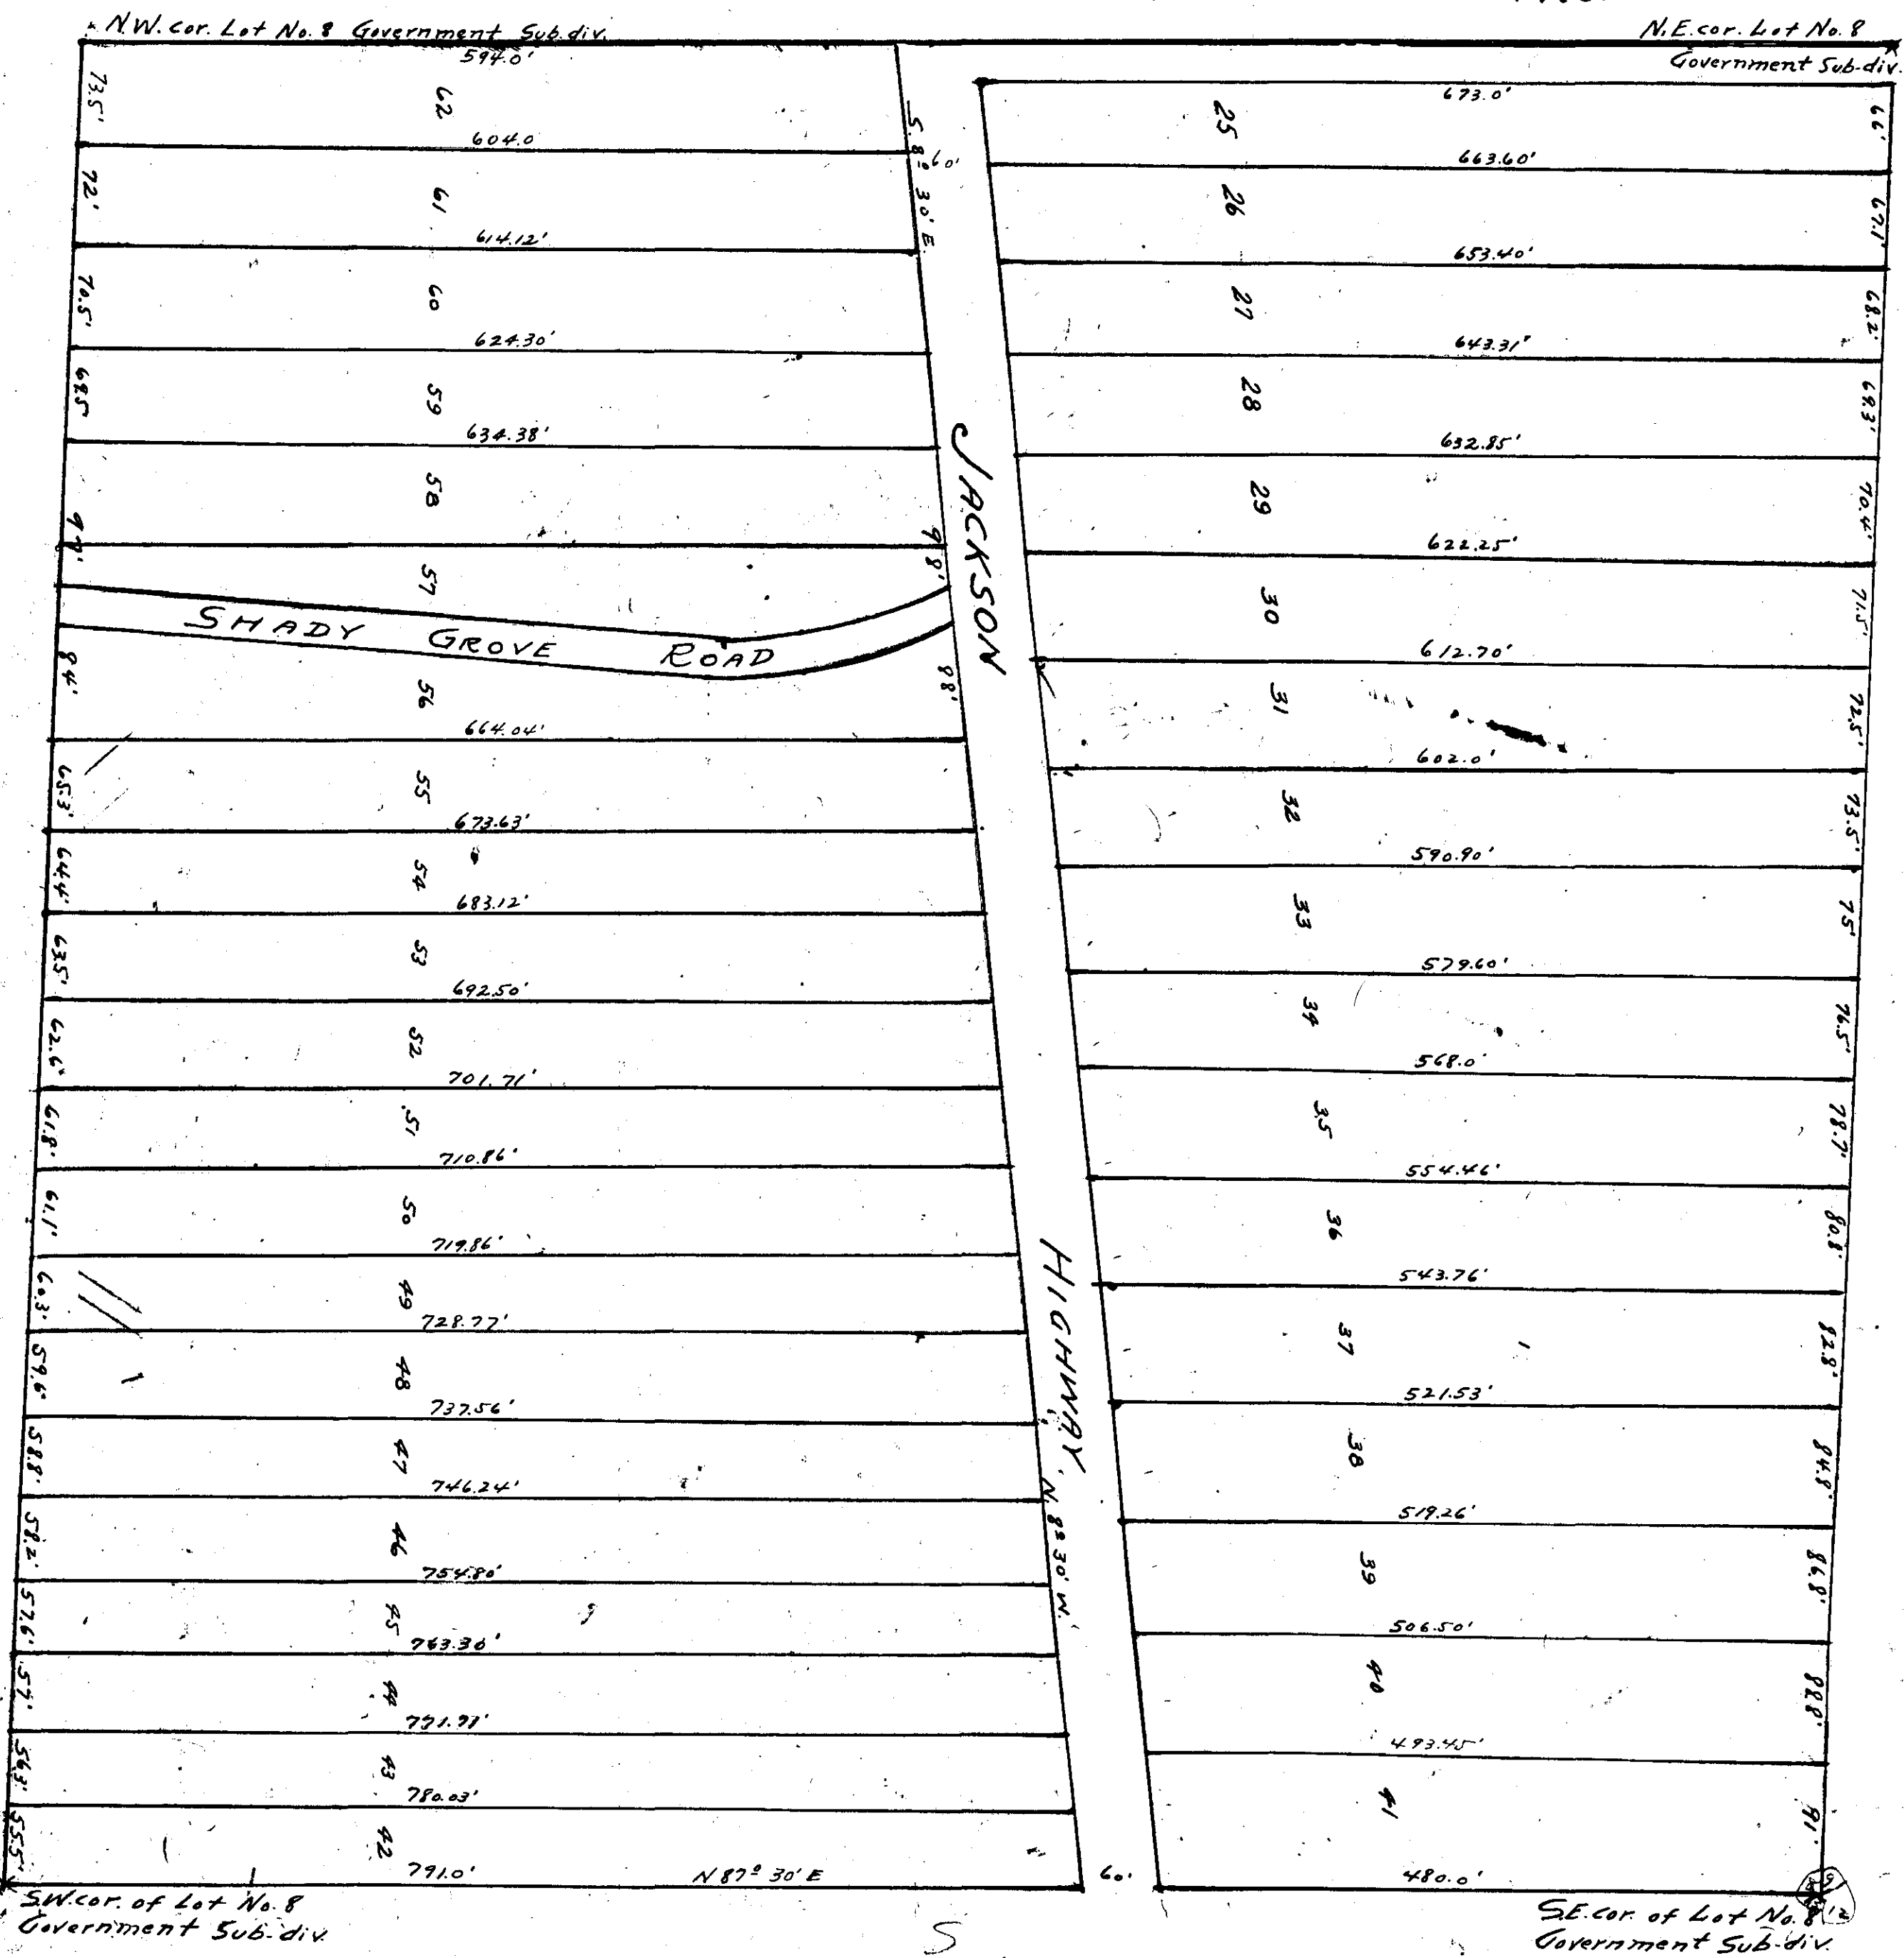 N.W. cor. Lot No. 8 Government Sub-div.
N.E. cor. Lot No. 8
Government Sub-div.
594.0'
73.5'
62
604.0
72'
61
614.12'
70.5'
60
624.30'
69.5'
59
634.38'
58
97'
98'
57
SHADY GROVE ROAD
84'
88'
56
664.04'
65.3'
55
673.63'
64.4'
54
683.12'
63.5'
53
692.50'
62.6'
52
701.71'
61.8'
51
710.86'
61.1'
50
719.86'
60.3'
49
728.77'
59.6'
48
737.56'
58.8'
47
746.24'
58.2'
46
754.80'
57.6'
45
763.30'
57'
44
771.97'
56.3'
43
780.03'
55.5'
42
791.0'
N 87° 30' E
S. 8° 30' E.
60'
JACKSON
HIGHWAY,
N. 8° 30' W.
60'
673.0'
25
66'
663.60'
26
67.1'
653.40'
27
68.2'
643.31'
28
69.3'
632.85'
29
70.4'
622.25'
30
71.5'
612.70'
31
72.5'
602.0'
32
73.5'
590.90'
33
75'
579.60'
34
76.5'
568.0'
35
78.7'
554.46'
36
80.8'
543.76'
37
82.8'
521.53'
38
84.8'
519.26'
39
86.8'
506.50'
40
88.8'
493.45'
41
91'
480.0'
S.W. cor. of Lot No. 8
Government Sub-div.
S
S.E. cor. of Lot No. 8
Government Sub-div.